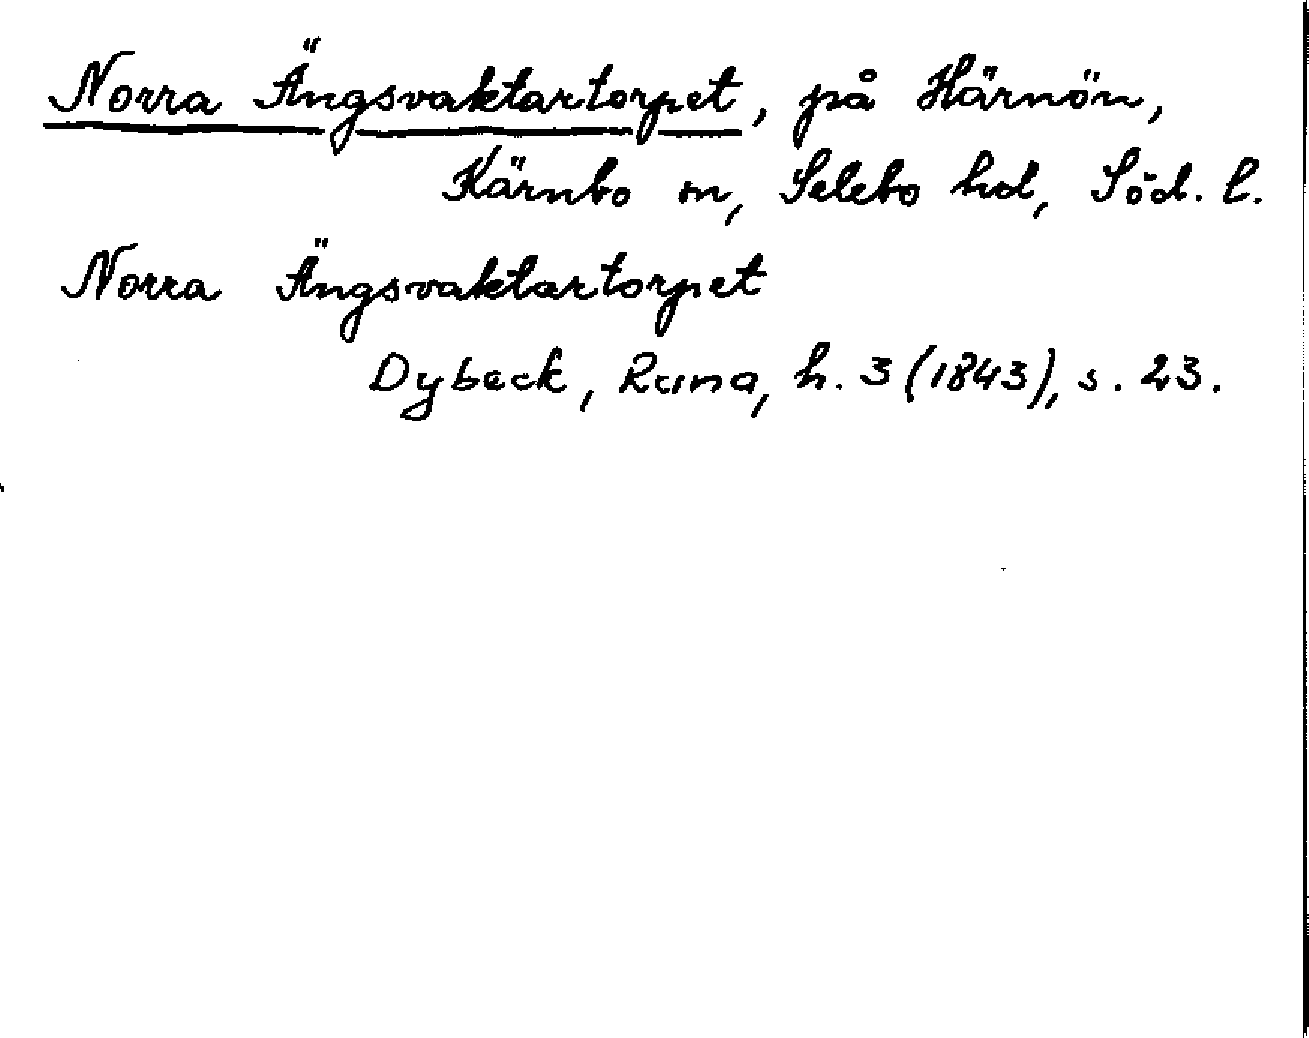 Norra Ängsvaktartorpet, på Härnön,
Kärnbo sn, Selebo hd, Söd. l.
Norra Ängsvaktartorpet
Dybeck, Runa, h. 3 (1843), s. 23.